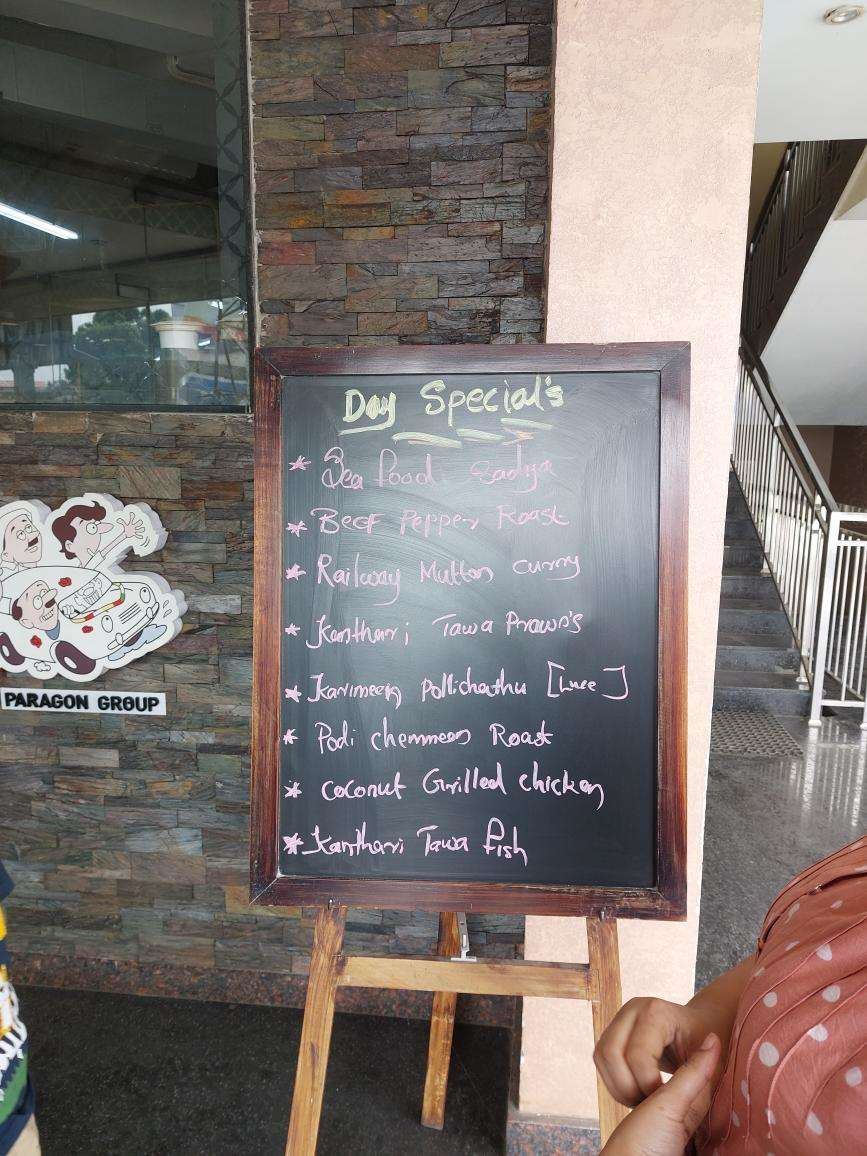 Day Special's
* Sea food Sadya
* Beef Pepper Roast
* Railway Mutton curry
* Kanthari Tawa Prawn's
* Karimeen Pollichathu [Live]
* Podi chemmeen Roast
* coconut Grilled chicken
* Kanthari Tawa fish
PARAGON GROUP